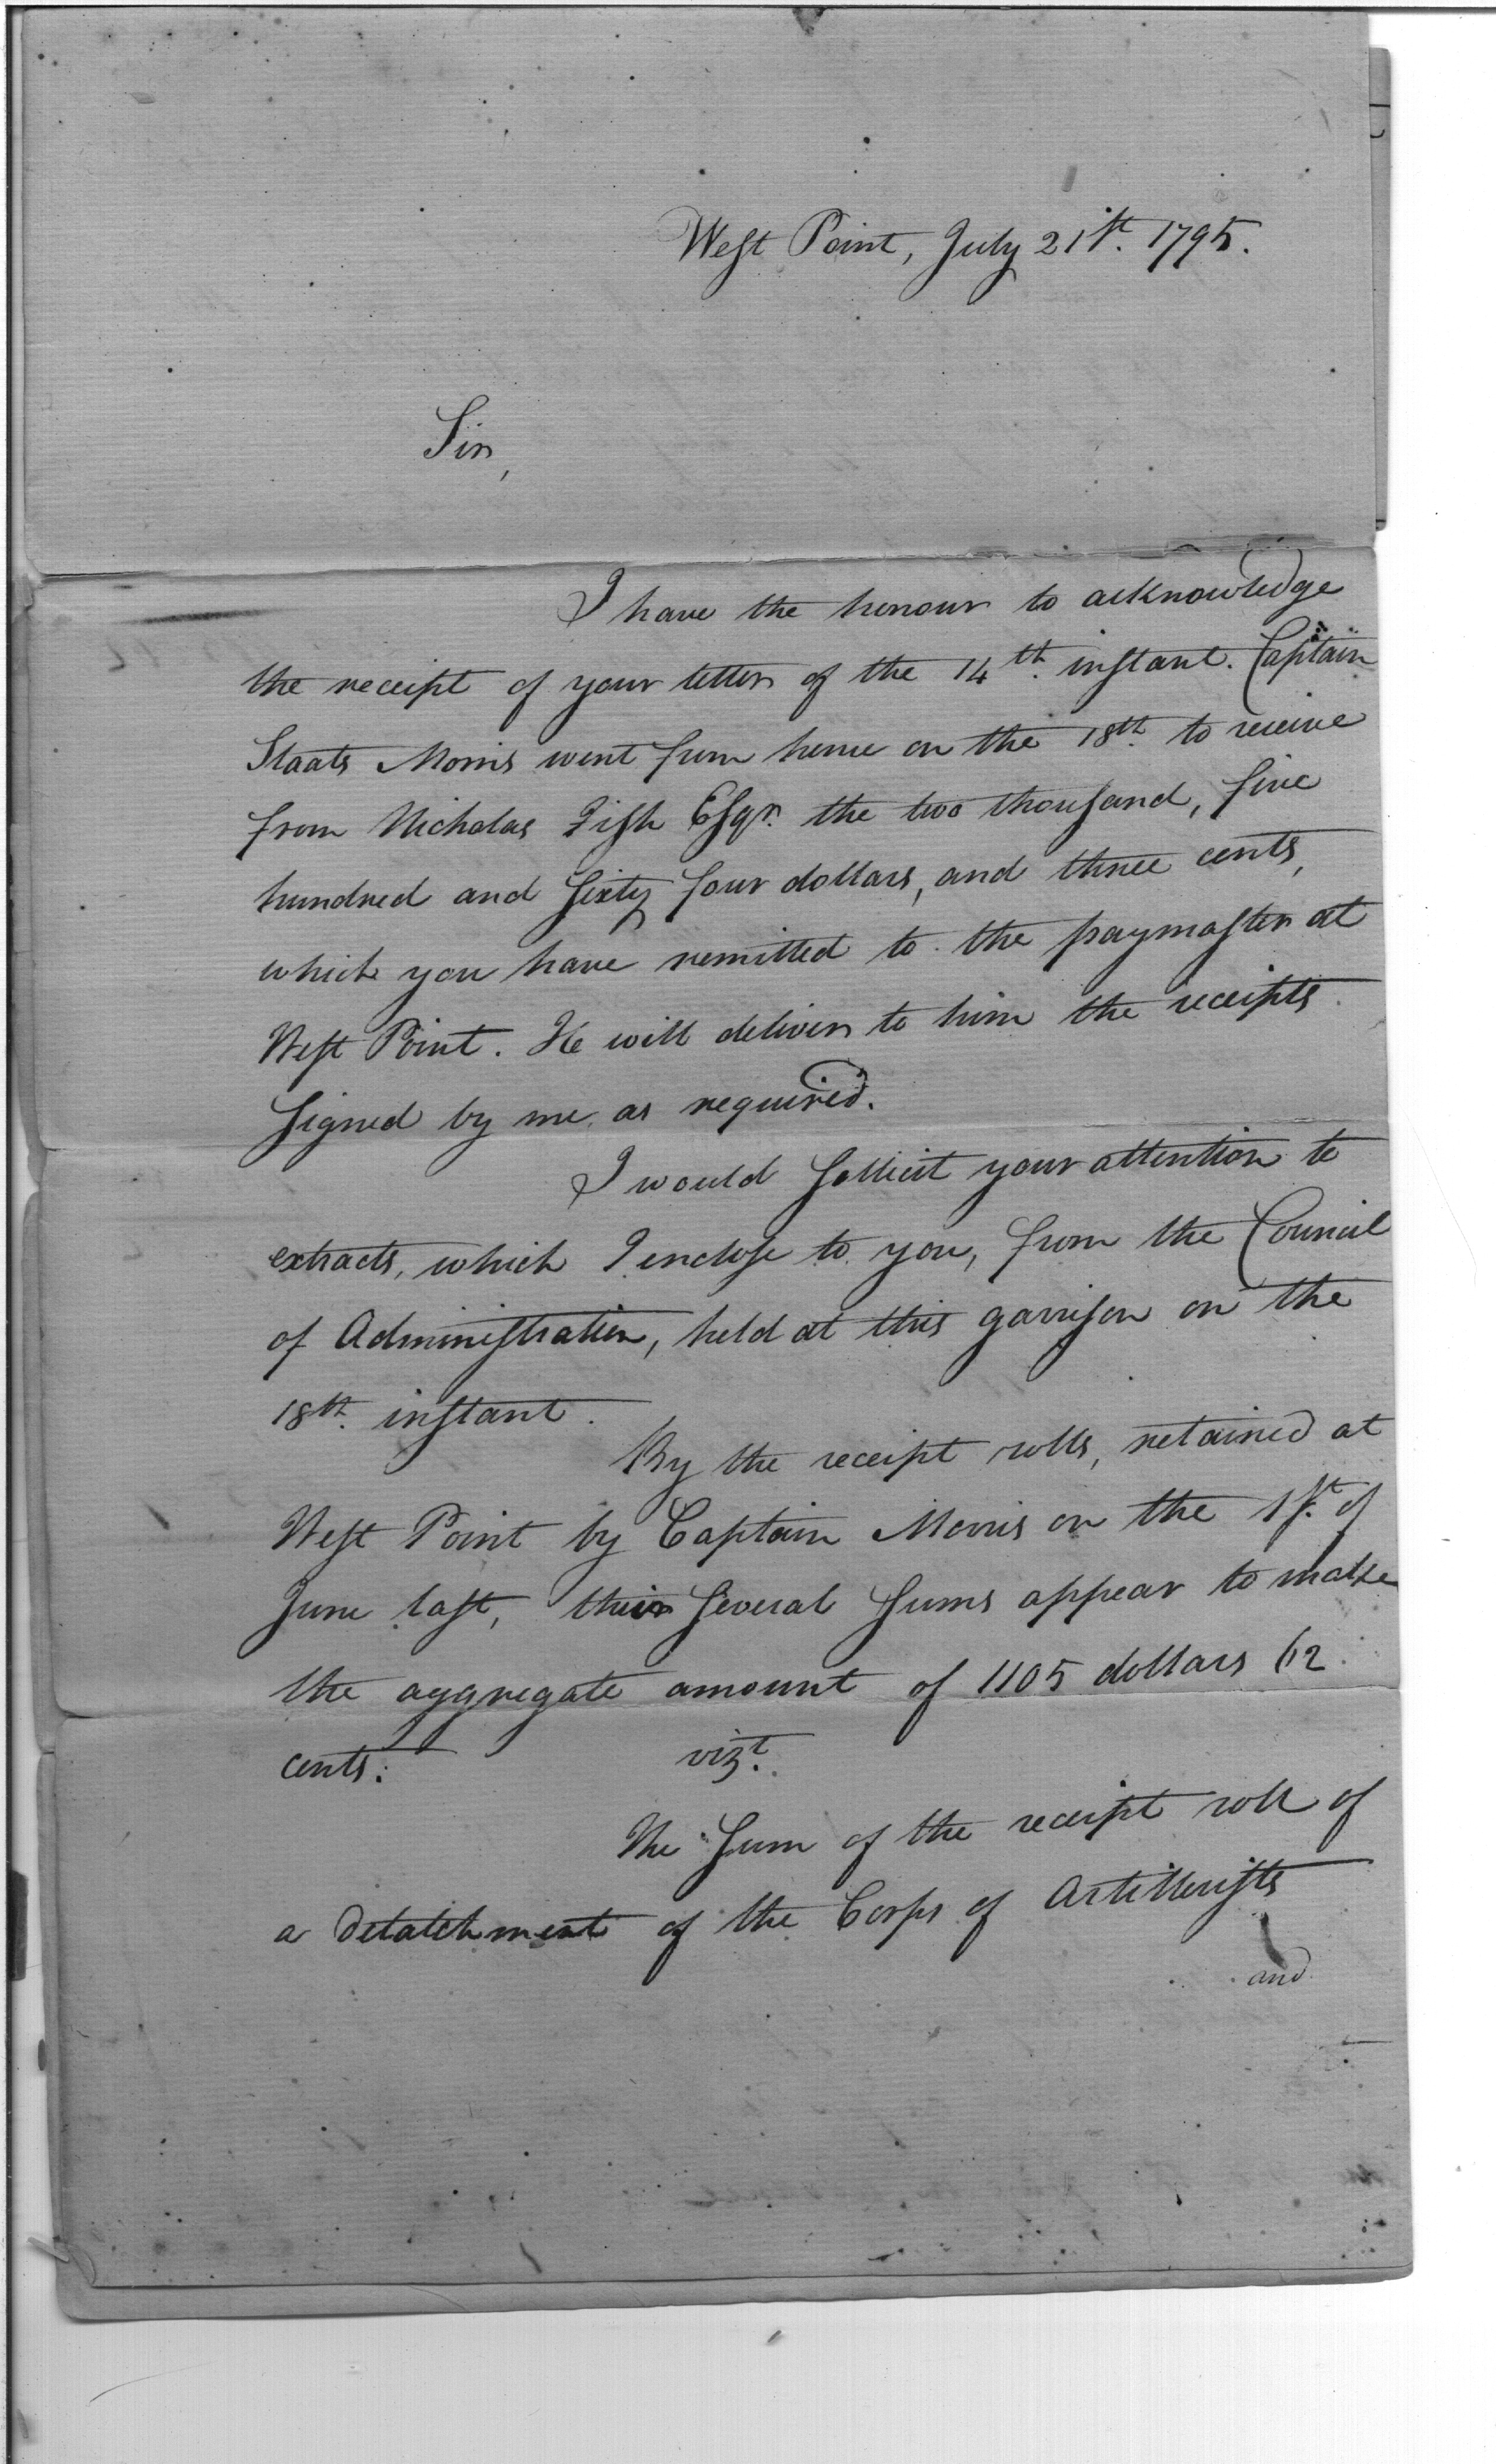 West Point, July 21st. 1795.
Sir,
I have the honour to acknowledge
the receipt of your letter of the 14th. instant. Captain
Staats Morris went from hence on the 18th. to receive
from Nicholas Fish Esqr. the two thousand, five
hundred and sixty four dollars, and three cents,
which you have remitted to the paymaster at
West Point. He will deliver to him the receipts
signed by me as required.
I would sollicit your attention to
extracts, which I enclose to you, from the Council
of Administration, held at this garrison on the
18th. instant.
By the receipt rolls, retained at
West Point by Captain Morris on the 1st. of
June last, their several sums appear to make
the aggregate amount of 1105 dollars 62
cents: vizt.
The sum of the receipt roll of
a detatchment of the Corps of Artillerists
and